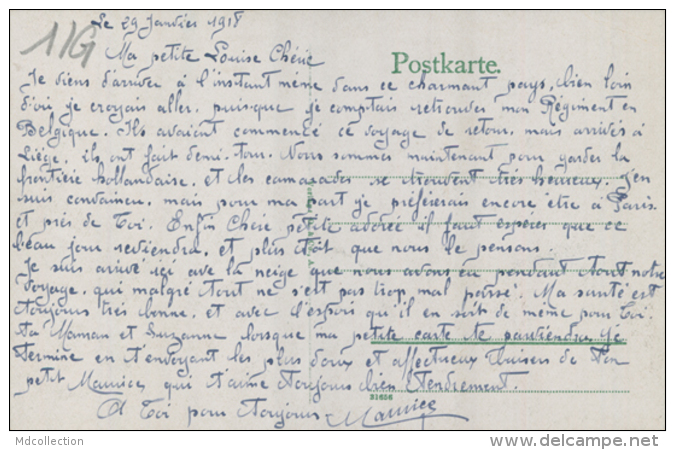 Le 29 Janvier 1918
11G
Ma petite Louise Chérie
Postkarte.
Je viens d'arriver à l'instant même dans ce charmant pays, bien loin
d'où je croyais aller, puisque je comptais retrouver mon Régiment en
Belgique. Ils avaient commencé ce voyage de retour, mais arrivés à
Liége, ils ont fait demi-tour. Nous sommes maintenant pour garder la
frontière hollandaise, et les camarades se trouvent très heureux. J'en
suis convaincu, mais pour ma part je préférerais encore être à Paris
et près de Toi. Enfin Chère petite adorée il faut espérer que ce
beau jour reviendra, et plus tôt que nous le pensons.
Je suis arrivé ici avec la neige que nous avons eu pendant tout notre
voyage, qui malgré tout ne s'est pas trop mal passé. Ma santé est
toujours très bonne, et avec l'espoir qu'il en soit de même pour Toi
ta Maman et Suzanne lorsque ma petite carte te parviendra. Je
termine en t'envoyant les plus doux et affectueux baisers de Ton
petit Maurice, qui t'aime toujours bien tendrement.
A Toi pour toujours Maurice
31656
Mdcollection
www.delcampe.net